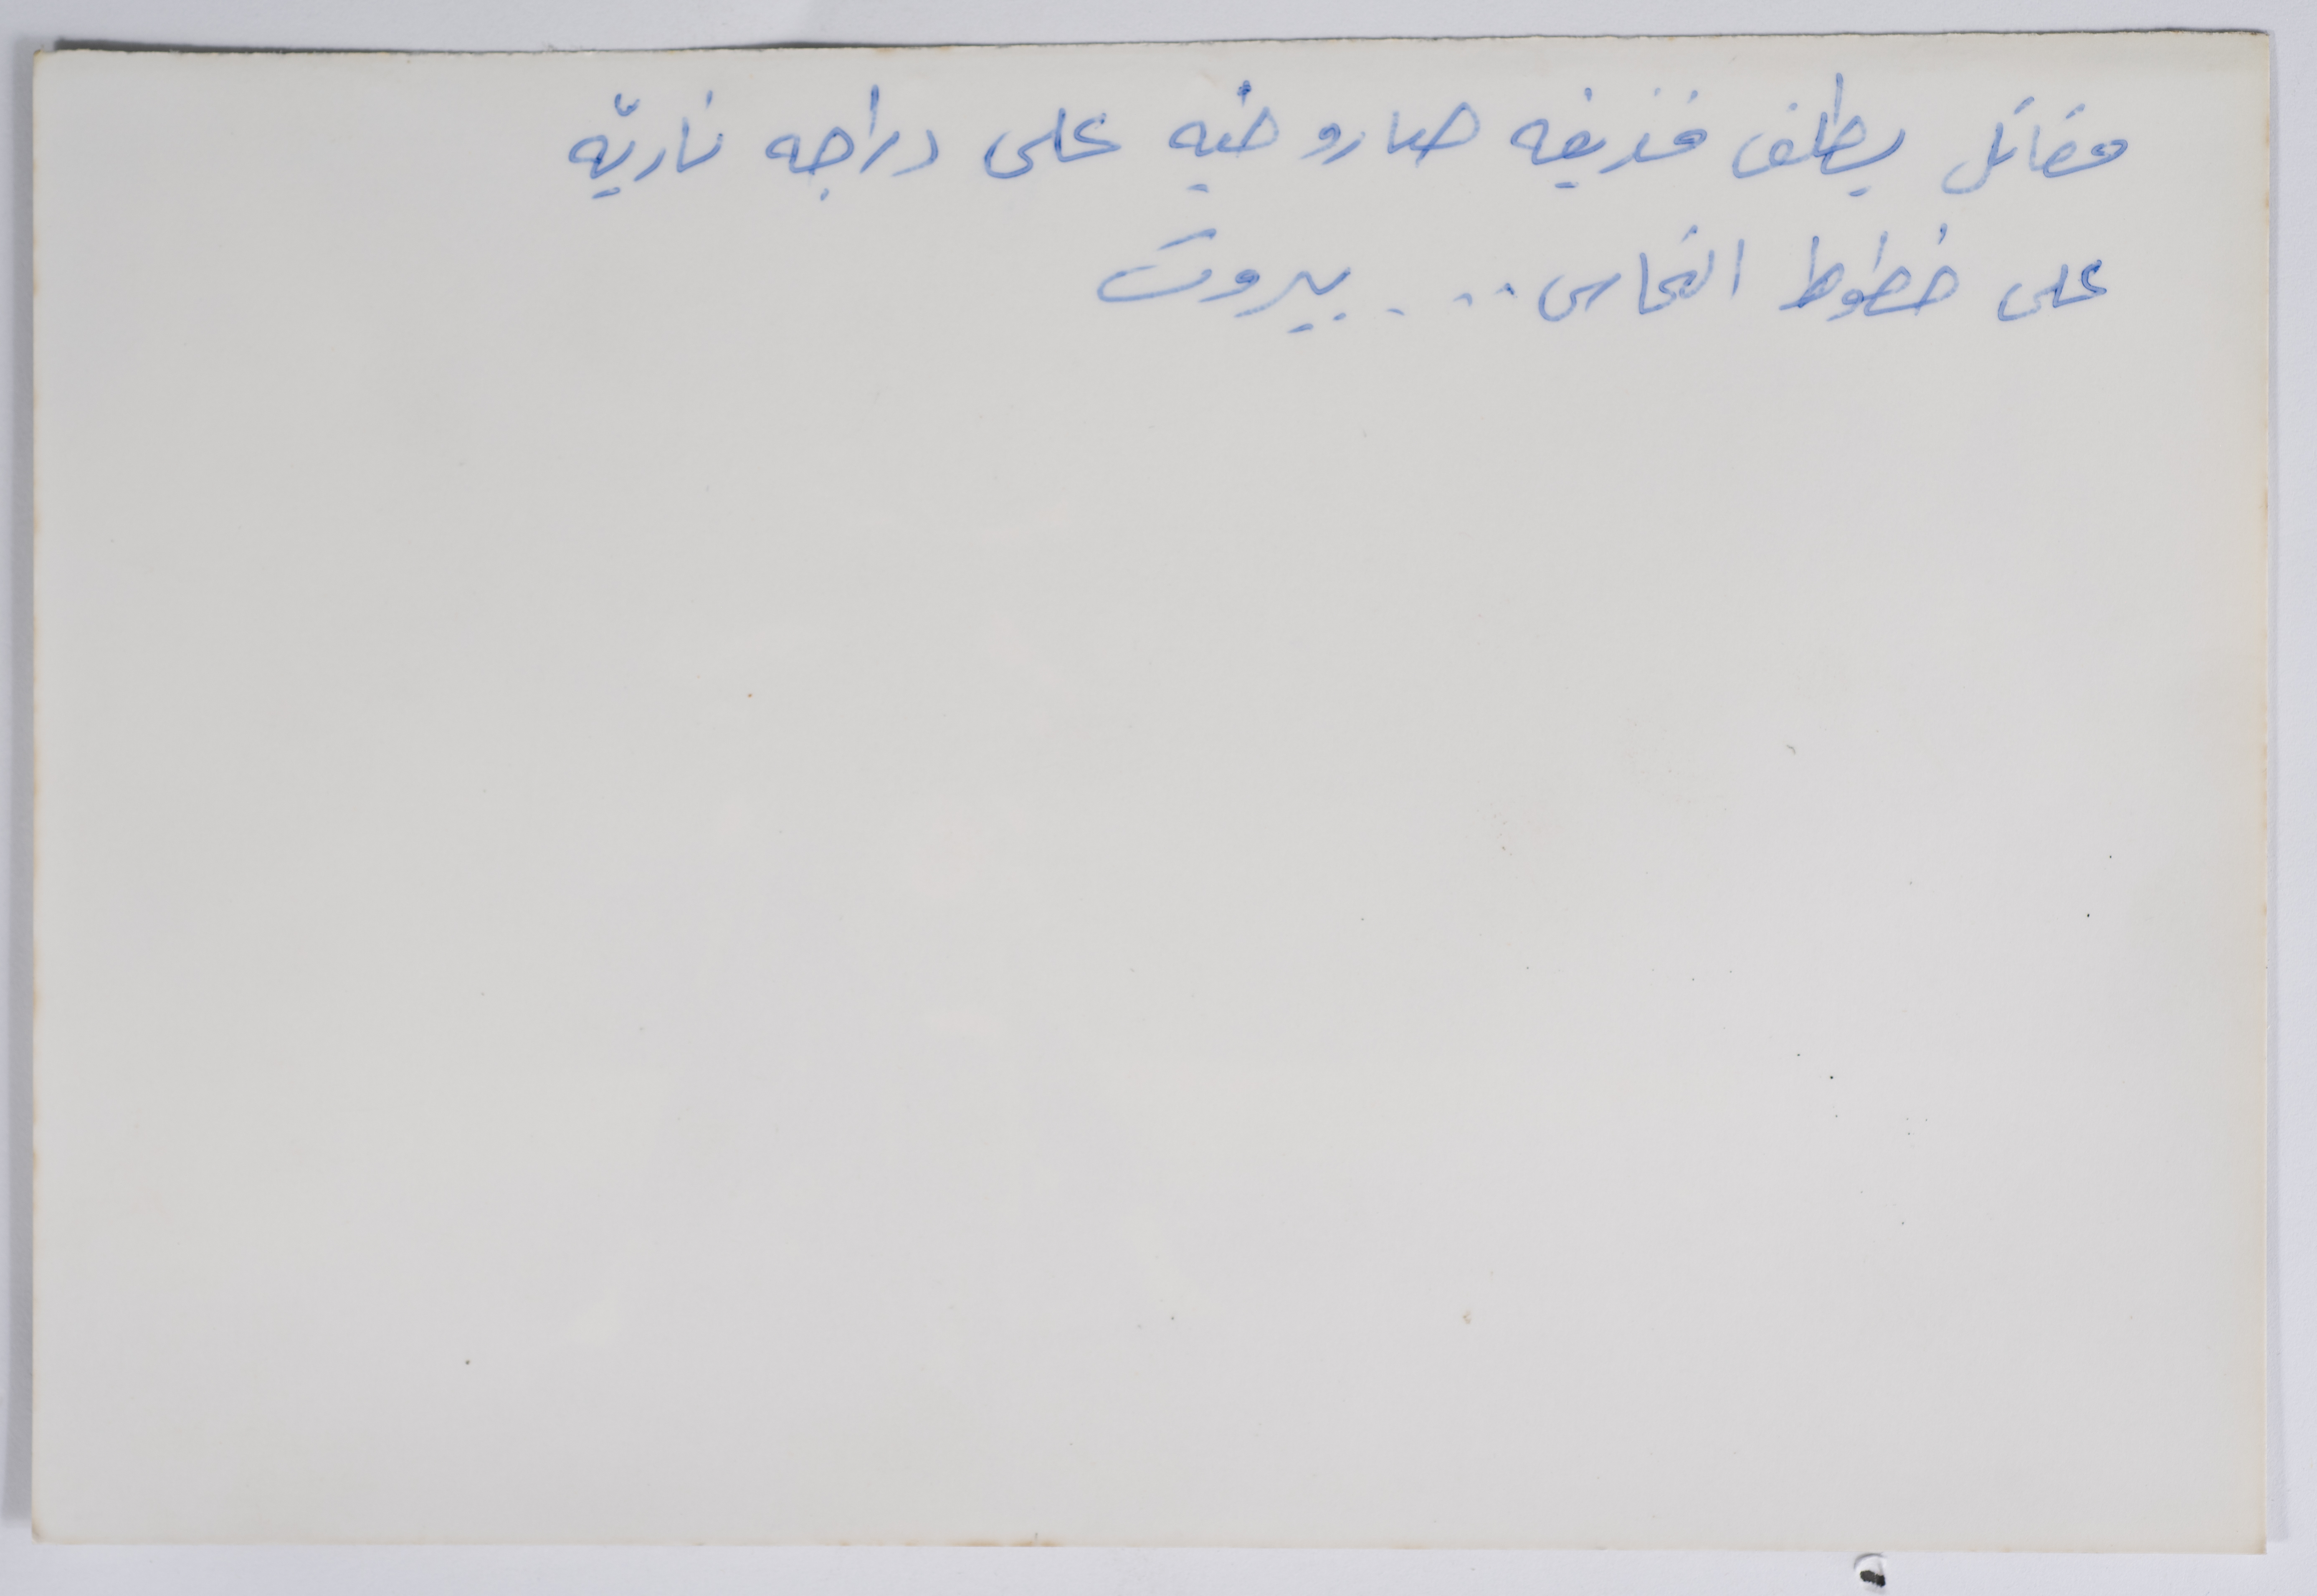 مقاتل يطلق قذيفه صاروخيه على دراجه ناريّه
على خطوط التماس .... بيروت